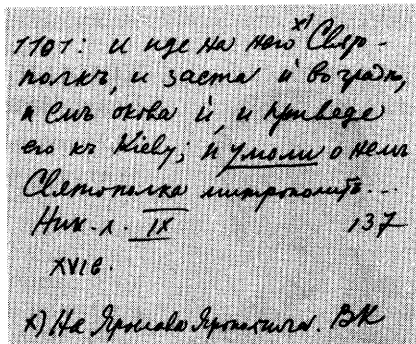 1101: и иде на него х) Свято-
полкъ, и заста и во градѣ,
и емъ окова и, и приведе
его къ Кіеву; и умоли о немъ
Святополка митрополитъ...
Ник. л. IX 137
XVI в.
х) На Ярослава Ярополчича. ВК